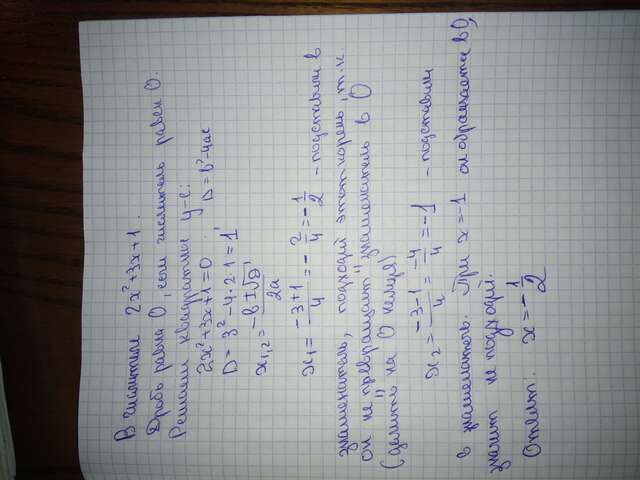 В числителе 2x²+3x+1.
Дробь равна 0, если числитель равен 0.
Решаем квадратное у-е:
2x²+3x+1=0 D=b²-4ac
D=3²-4·2·1=1
x₁,₂=(-b±√D)/2a
x₁=(-3+1)/4=-2/4=-1/2 - подставили в
знаменатель, подходит этот корень, т.к.
он не "превращает" знаменатель в 0
(делить на 0 нельзя)
x₂=(-3-1)/4=-4/4=-1 - подставили
в знаменатель. При x=-1 он обращается в 0,
значит не подходит.
Ответ: x=-1/2